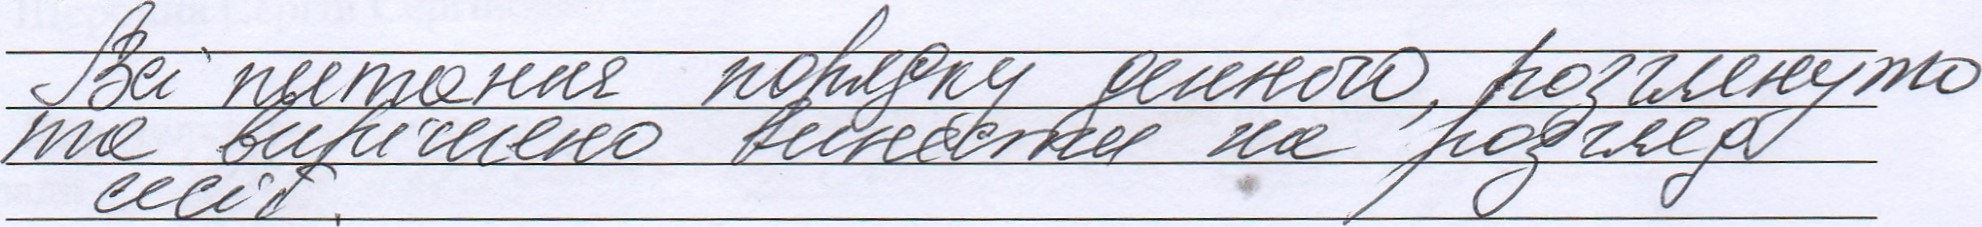 Всі питання порядку денного, розглянуто
та вирішено винести на розгляд
сесії.